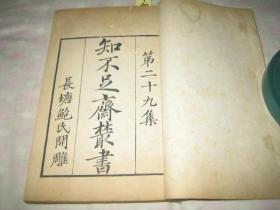 第二十九集
知不足齋叢書
長塘鮑氏開雕